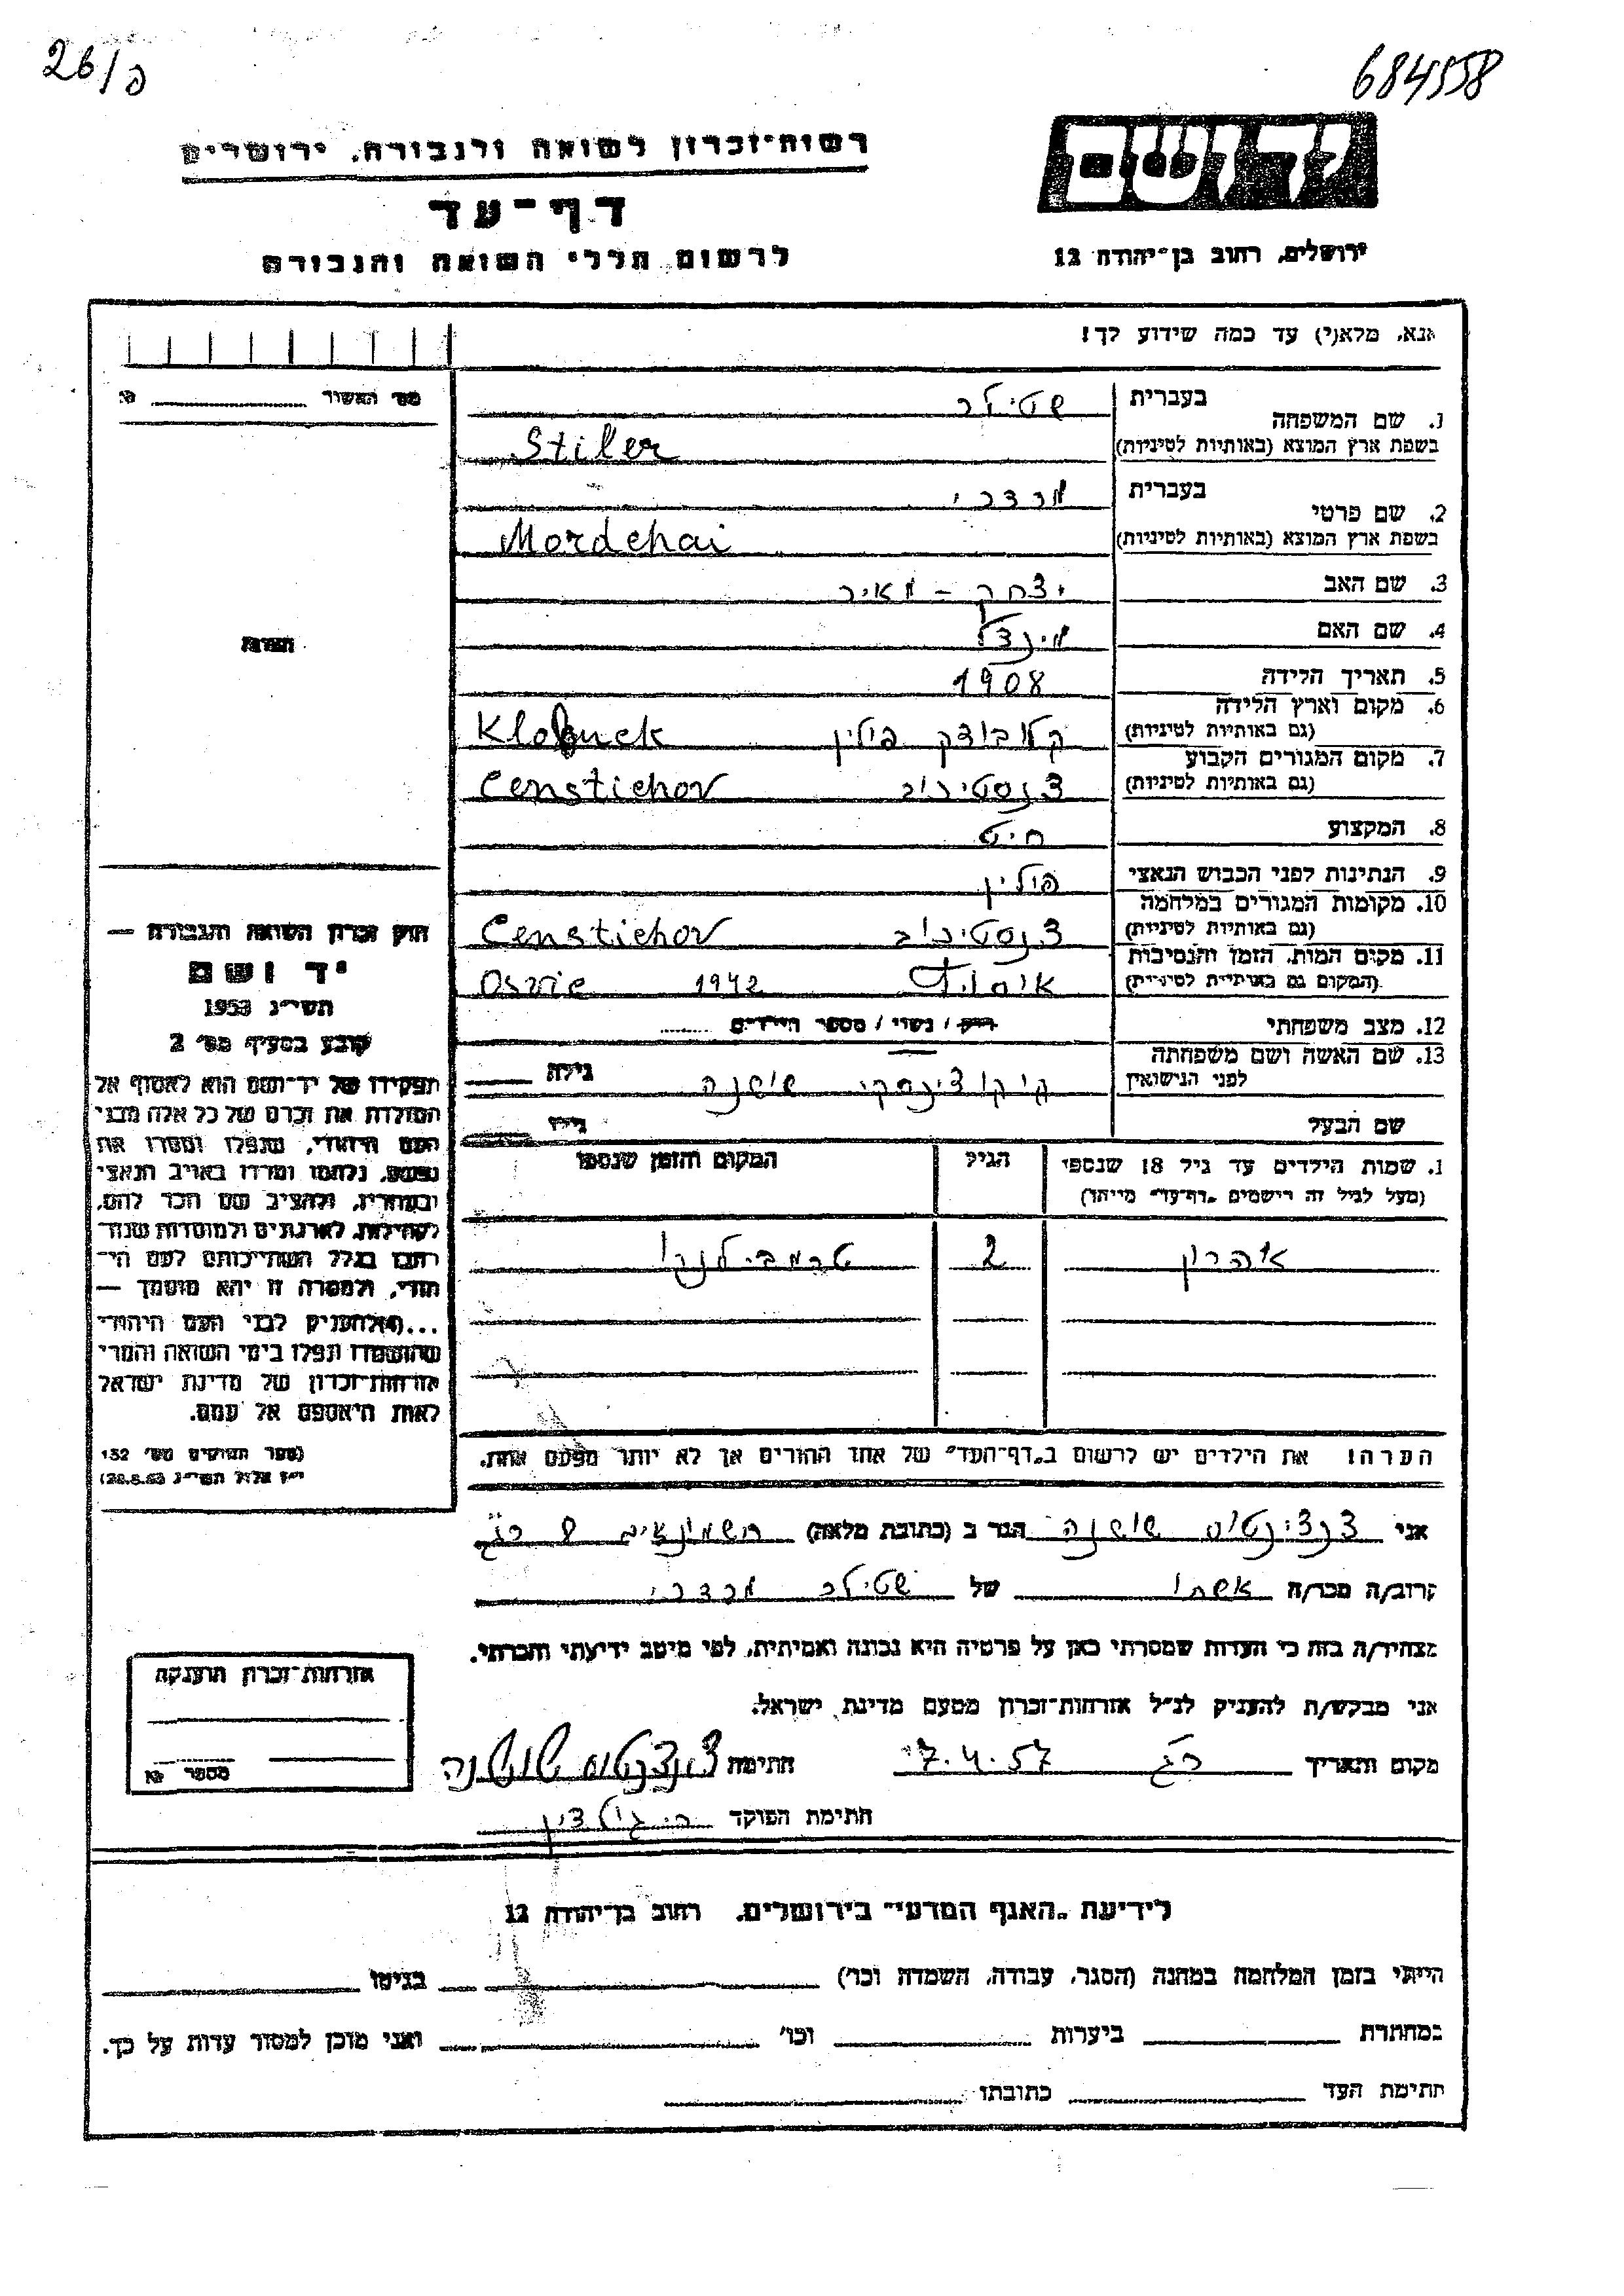 26/פ
684558
יד ושם
רשות-זכרון לשואה ולגבורה, ירושלים
דף-עד
לרשום חללי השואה והגבורה
ירושלים, רחוב בן-יהודה 12
אנא, מלא(י) עד כמה שידוע לך!
מס' האשור
1. שם המשפחה
בעברית שטילר
בשפת ארץ המוצא (באותיות לטיניות) Stiler
2. שם פרטי
בעברית מרדכי
בשפת ארץ המוצא (באותיות לטיניות) Mordehai
3. שם האב יצחק - מאיר
4. שם האם מינדל
5. תאריך הלידה 1908
6. מקום וארץ הלידה
(גם באותיות לטיניות) קלובוצק פולין Klobuck
7. מקום המגורים הקבוע
(גם באותיות לטיניות) צנסטיכוב Censtichov
8. המקצוע חיט
9. הנתינות לפני הכבוש הנאצי פולין
10. מקומות המגורים במלחמה
(גם באותיות לטיניות) צנסטיכוב Censtichov
11. מקום המות, הזמן והנסיבות
(המקום גם באותיות לטיניות) 1942
12. מצב משפחתי רווק / נשוי / מספר הילדים
13. שם האשה ושם משפחתה
לפני הנישואין שושנה גילה
שם הבעל גילו
1. שמות הילדים עד גיל 18 שנספו
(מעל לגיל זה רישמים "דף-עד" מייחד)
הגיל
המקום והזמן שנספו
אהרון 2 טרמבילנקי
הערה: את הילדים יש לרשום ב"דף-העד" של אחד ההורים אך לא יותר מפעם אחת.
הערות
חוק זכרון השואה והגבורה —
יד ושם
תשי"ג 1953
קובע בסעיף מס' 2
תפקידו של יד-ושם הוא לאסוף אל
המולדת את זכרם של כל אלה מבני
העם היהודי, שנפלו ומסרו את
נפשם, נלחמו ומרדו באויב הנאצי
ובעוזריו, ולהציב שם וזכר להם,
לקהילות, לארגונים ולמוסדות שנח-
רבו בגלל השתייכותם לעם הי-
הודי, ולמטרה זו יהא מוסמך —
...(4) להעניק לבני העם היהודי
שהושמדו ונפלו בימי השואה והמרי
אזרחות-זכרון של מדינת ישראל
לאות היאספם אל עמם.
(ספר החוקים מס' 132
י"ז אלול תשי"ג 28.8.53)
אני צנצינטוס שושנה הגר ב (כתובת מלאה) חשמונאים 8 רג
קרוב/ה מכר/ה אשתו של שטילר מרדכי
מצהיר/ה בזה כי העדות שמסרתי כאן על פרטיה היא נכונה ואמיתית, לפי מיטב ידיעתי והכרתי.
אני מבקש/ת להעניק לנ"ל אזרחות-זכרון מטעם מדינת ישראל.
מקום ותאריך רג 7.4.57 חתימה צנצינטוס שושנה
חתימת הפוקד
אזרחות-זכרון הוענקה
מספר
לידיעת "האגף המדעי" בירושלים, רחוב בן-יהודה 12
הייתי בזמן המלחמה במחנה (הסגר, עבודה, השמדה וכו') בגיטו
במחתרת ביערות וכו' ואני מוכן למסור עדות על כך.
חתימת העד כתובתו